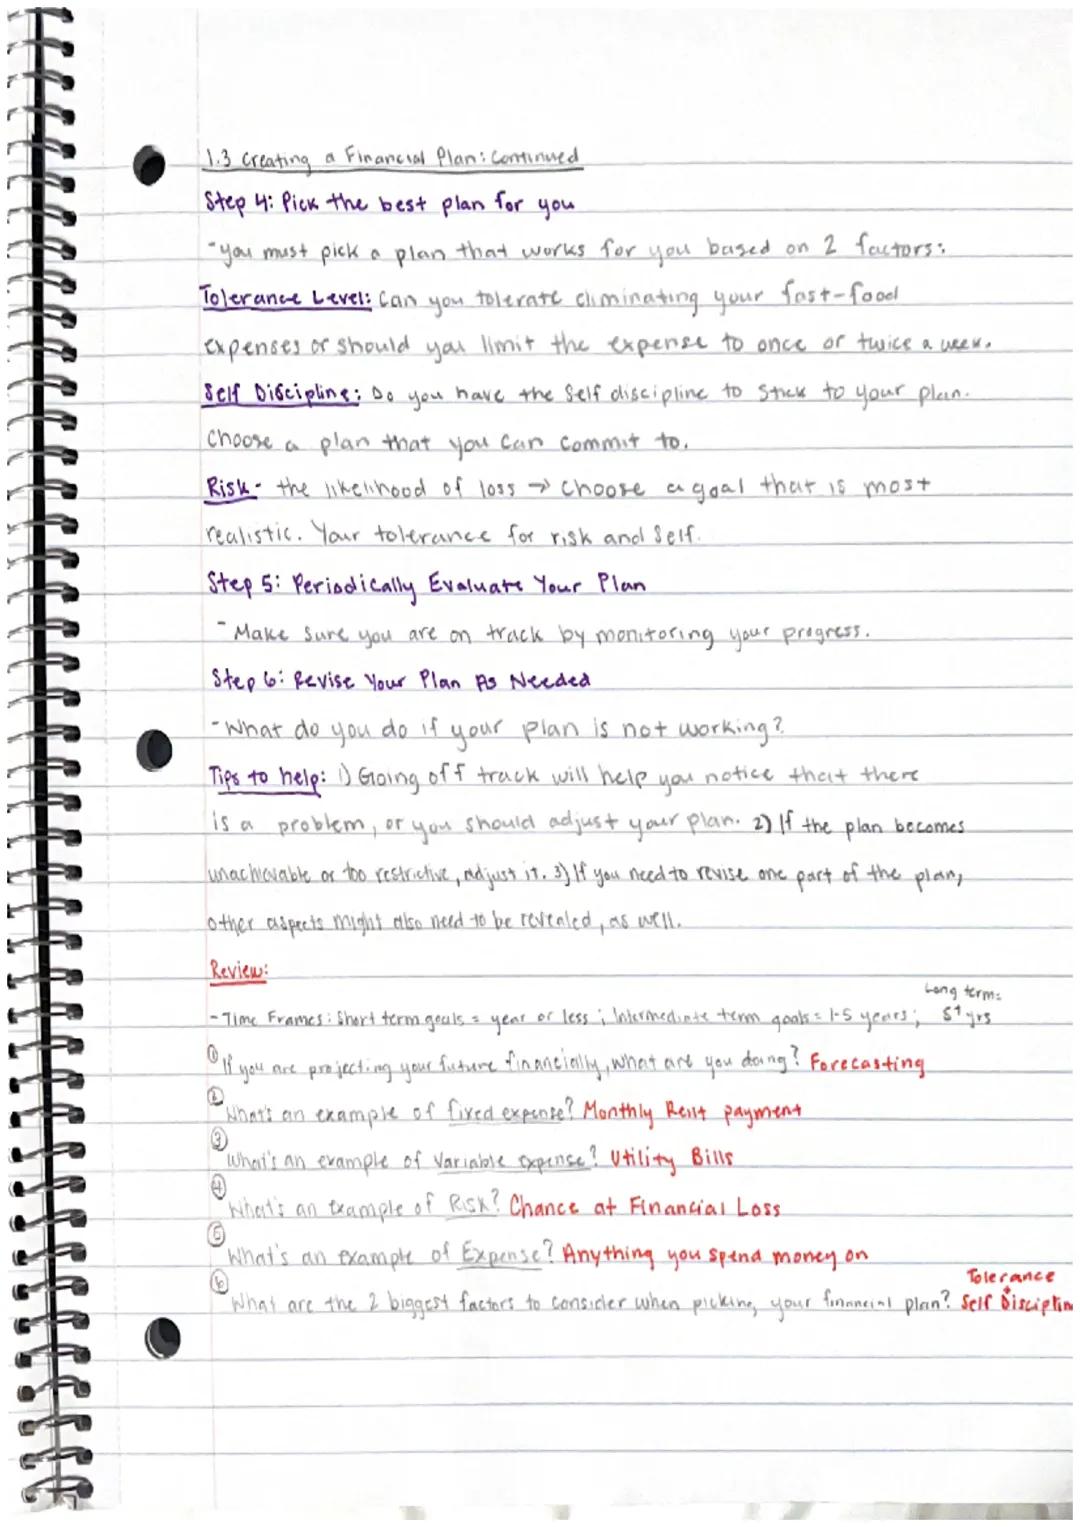 1.3 Creating a Financial Plan: Continued
Step 4: Pick the best plan for you
-you must pick a plan that works for you based on 2 factors:
Tolerance Level: Can you tolerate eliminating your fast-food
expenses or should you limit the expense to once or twice a week.
Self Discipline: Do you have the Self discipline to Stick to your plan.
Choose a plan that you can commit to.
Risk- the likelihood of loss → Choose a goal that is most
realistic. Your tolerance for risk and Self.
Step 5: Periodically Evaluate Your Plan
- Make Sure you are on track by monitoring your progress.
Step 6: Revise Your Plan As Needed
-What do you do if your plan is not working?
Tips to help: 1) Going off track will help you notice that there
is a problem, or you should adjust your plan. 2) If the plan becomes
unachievable or too restrictive, adjust it. 3) If you need to revise one part of the plan,
other aspects might also need to be revealed, as well.
Review:
-Time Frames: Short term goals = year or less; Intermediate term goals = 1-5 years; Long term: 5+ yrs
① If you are projecting your future financially, what are you doing? Forecasting
② What's an example of fixed expense? Monthly Rent payment
③ What's an example of Variable expense? Utility Bills
④ What's an example of Risk? Chance at Financial Loss
⑤ What's an example of Expense? Anything you spend money on
⑥ What are the 2 biggest factors to consider when picking your financial plan? Tolerance + Self Disciplin